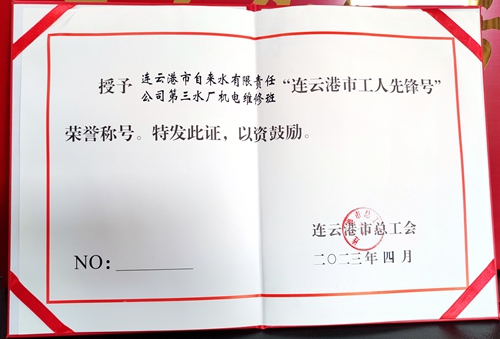 授予 连云港市自来水有限责任公司第三水厂机电维修班 “连云港市工人先锋号”
荣誉称号。特发此证，以资鼓励。
连云港市总工会
NO：
二〇二三年四月